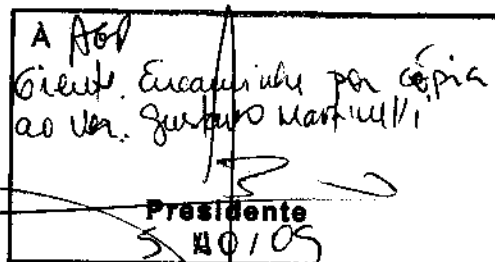 A AGP
Ciente. Encaminhe por cópia
ao Ver. Gustavo Martinelli,
Presidente
5 10 / 09